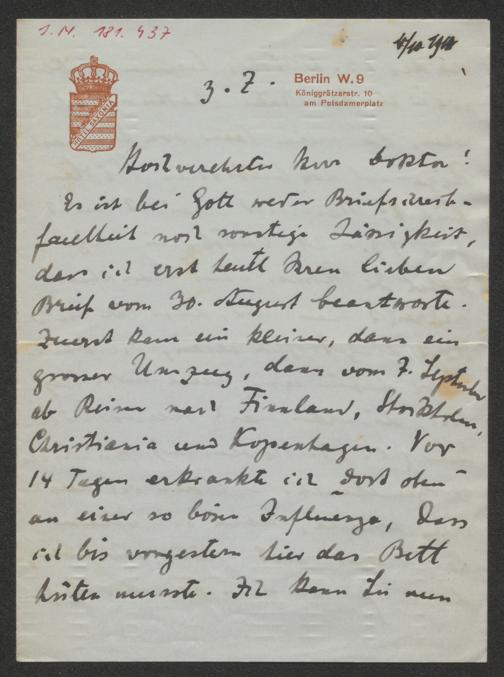 I.N. 181.437
4/10 1910
z. Z.
Berlin W. 9
Königgrätzerstr. 10
am Potsdamerplatz
Hochverehrter Herr Doktor!
Es ist bei Gott weder Briefschreib-
faulheit noch sonstige Lässigkeit,
dass ich erst heute Ihren lieben
Brief vom 30. August beantworte.
Zuerst kam ein kleiner, dann ein
grosser Umzug, dann vom 7. September
ab Reisen nach Finnland, Stockholm,
Christiania und Kopenhagen. Vor
14 Tagen erkrankte ich dort oben
an einer so bösen Influenza, dass
ich bis vorgestern hier das Bett
hüten musste. Ich kann Sie nun